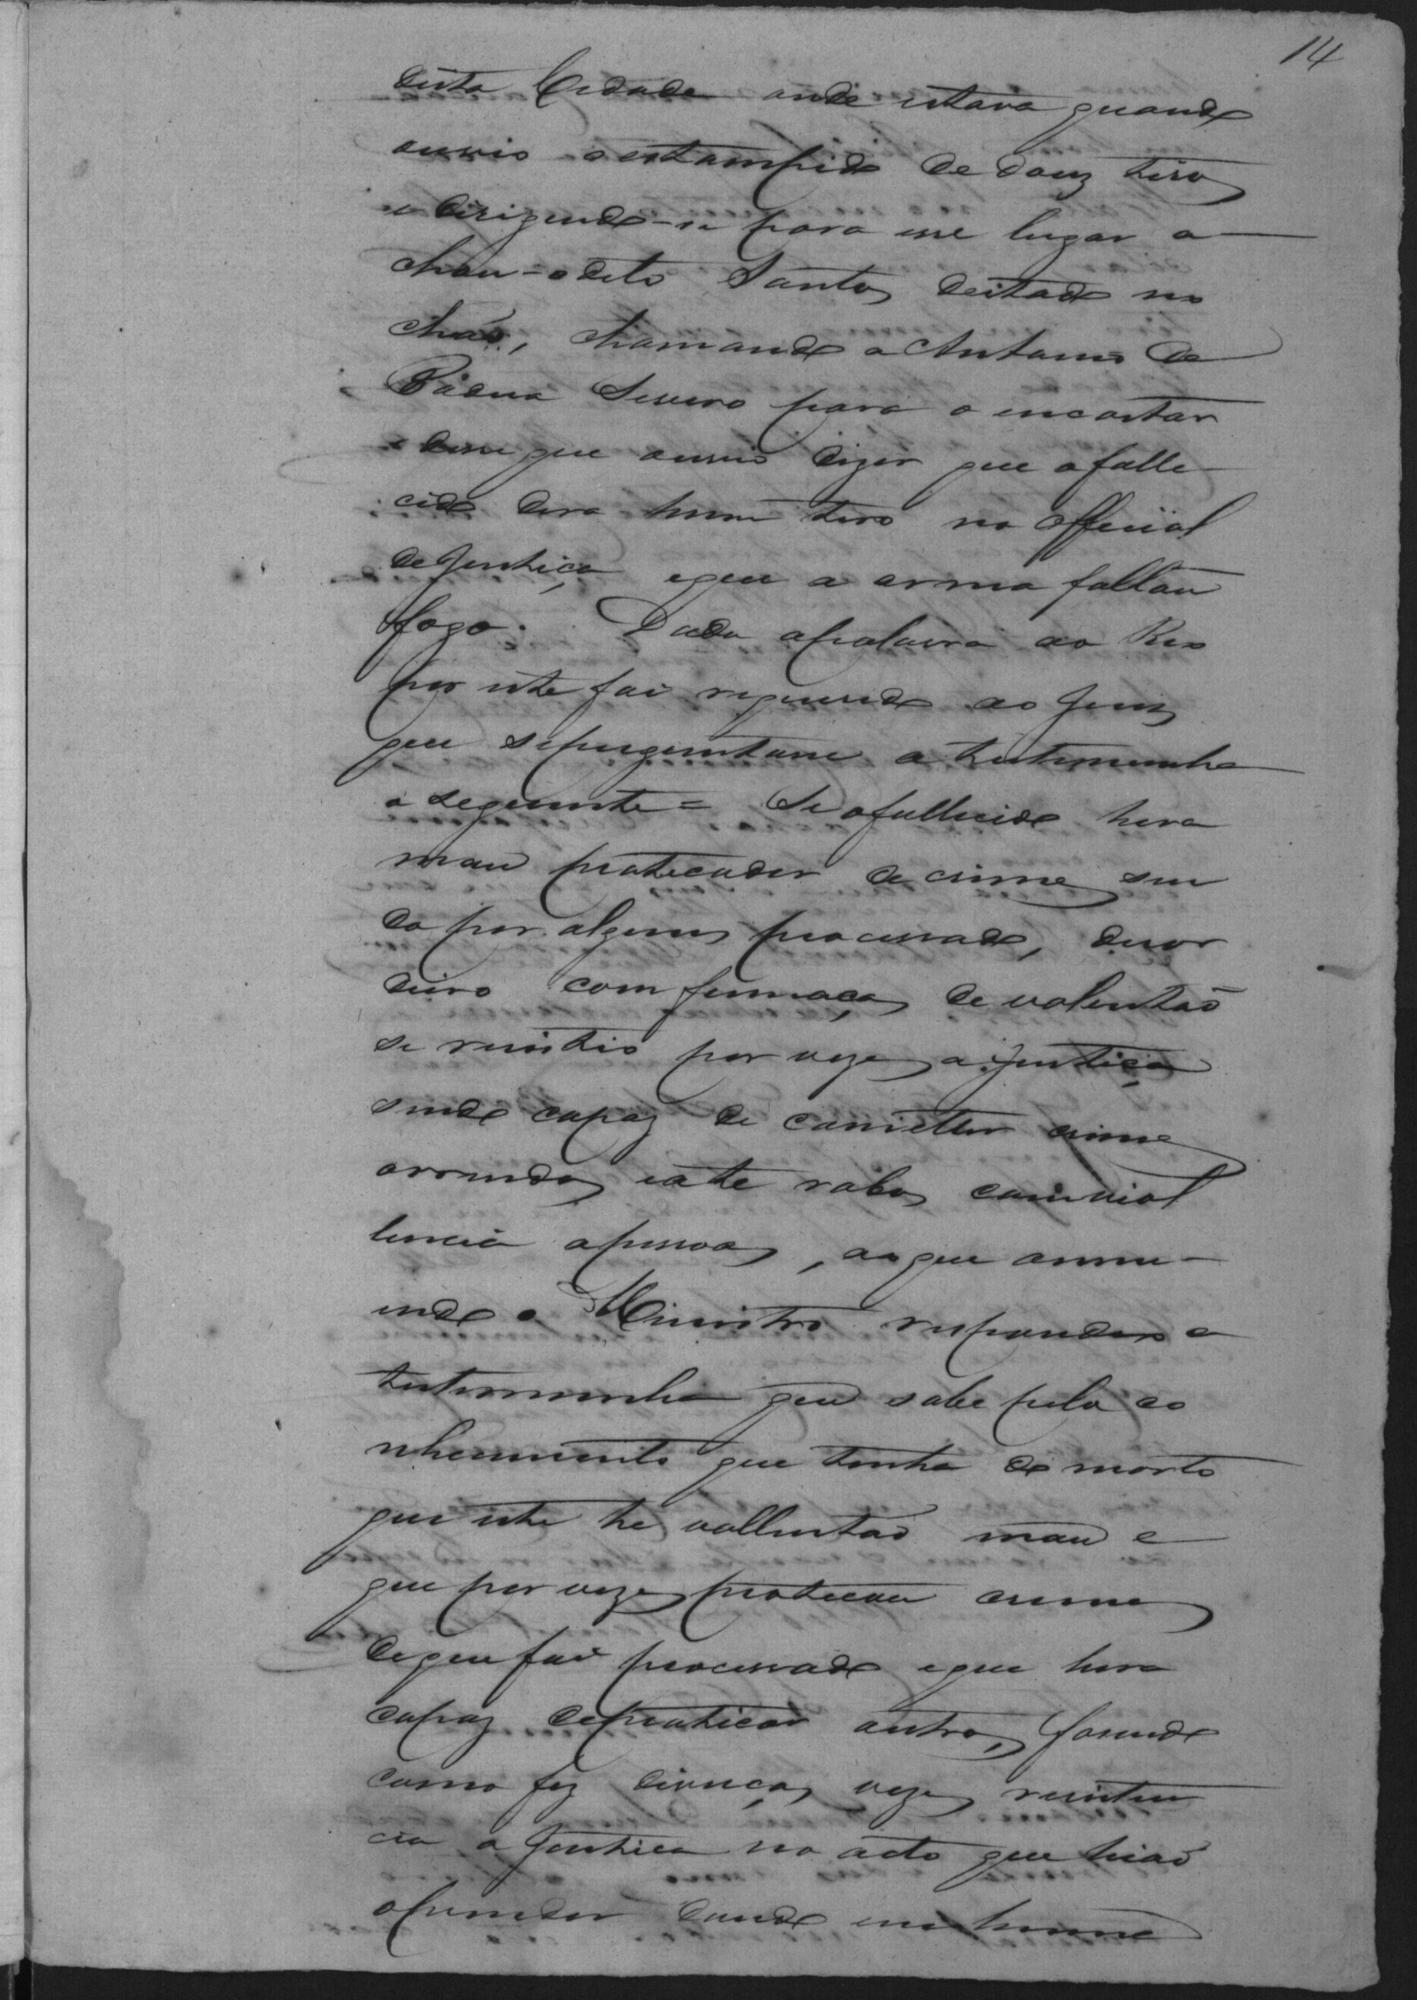 14
desta Cidade onde estava quando
ouvio o estampido de douz tiros
e dirigindo-se para esse lugar a-
chou-o dito Santos deitado no
chaõ, chamando a Antonio de
Padua Severo para o encostar
e disse que ouvio dizer que o falle-
cido dera hum tiro no official
de Justiça e que a arma falhou
fogo. Dada a palavra ao Reo
por este foi requerido ao Juiz
que se preguntasse a testemunha
o seguinte = Se o fallecido hera
mau praticador de crimes sen
do por alguns processado, desor
deiro com fumaças de valentaõ
se resistio por vezes a Justiça
sendo capaz de cometter crimes
orrendos e ate robos com viol
lencia a pessoas, ao que annu-
indo o Ministro respondeo a
testemunha que sabe pelo co
nhecimento que tinha do morto
que este he vallentaõ mau e
que por vezes praticou crimes
de que foi processado e que hera
capaz de praticar outros, fasendo
como fez diversas vezes resisten
cia a Justica no acto que hiaõ
a prender dando em hum